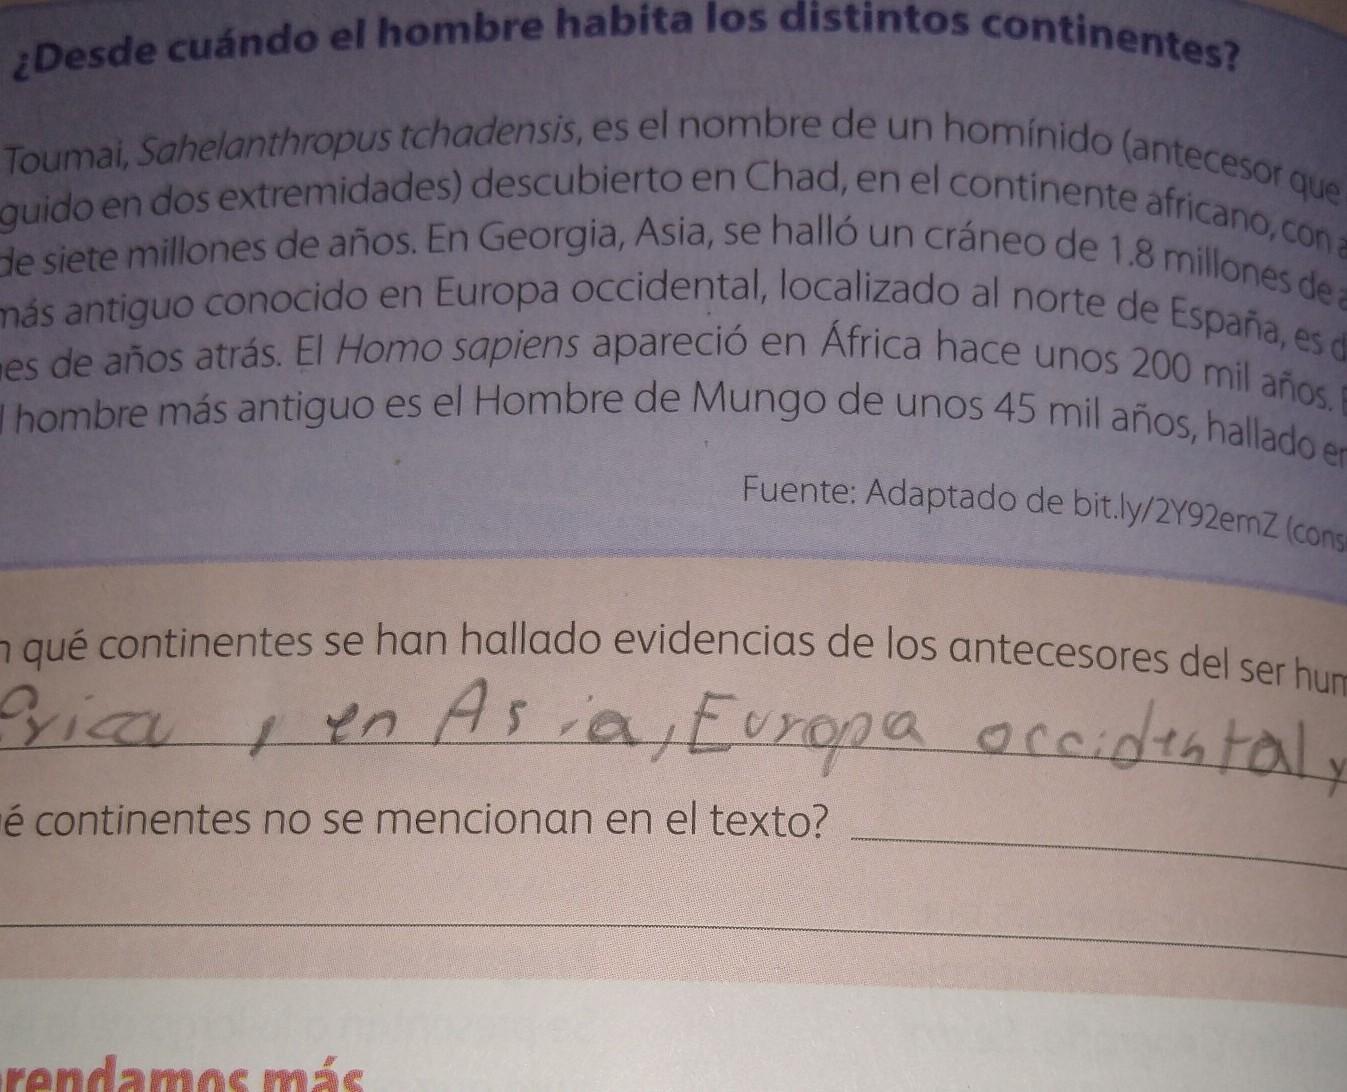 ¿Desde cuándo el hombre habita los distintos continentes?
Toumai, Sahelanthropus tchadensis, es el nombre de un homínido (antecesor que
guido en dos extremidades) descubierto en Chad, en el continente africano, con a
de siete millones de años. En Georgia, Asia, se halló un cráneo de 1.8 millones de a
más antiguo conocido en Europa occidental, localizado al norte de España, es d
es de años atrás. El Homo sapiens apareció en África hace unos 200 mil años.
l hombre más antiguo es el Hombre de Mungo de unos 45 mil años, hallado en
Fuente: Adaptado de bit.ly/2Y92emZ (cons
n qué continentes se han hallado evidencias de los antecesores del ser hum
rica , en Asia, Europa occidental y
é continentes no se mencionan en el texto?
rendamos más